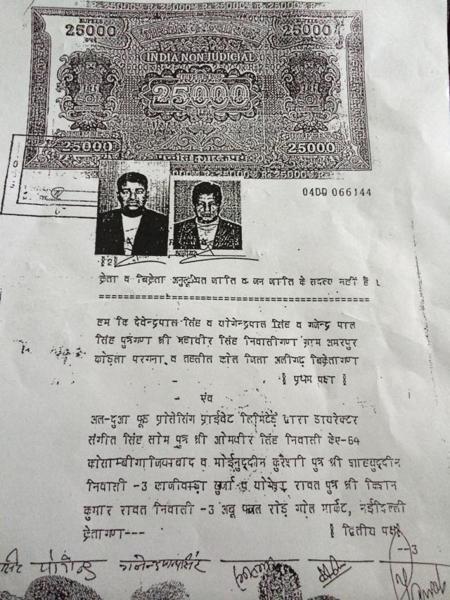 25000 25000
INDIA NON JUDICIAL
25000
25000 25000
पच्चीस हजार रुपये
04DD 066144
क्रेता व बिक्रेता अनुसूचित जाति व जन जाति के सदस्य नहीं है ।
हम कि देवेन्द्रपाल सिंह व योगेन्द्रपाल सिंह व गजेन्द्र पाल
सिंह पुत्रगण श्री महावीर सिंह निवासीगण ग्राम अमरपुर
कोंडला परगना व तहसील कोल जिला अलीगढ़ बिक्रेतागण
‖ प्रथम पक्ष ‖
एवं
अल-दुआ फूड प्रोसेसिंग प्राईवेट लिमिटेड द्वारा डायरेक्टर
संगीत सिंह सोम पुत्र श्री ओमवीर सिंह निवासी केए-64
कोसाम्बी गाजियाबाद व मोईनुद्दीन कुरैशी पुत्र श्री
निवासी -3 व योगेश रावत पुत्र श्री किशन
कुमार रावत निवासी -3 रोड़ गोल मार्केट, नईदिल्ली
क्रेतागण---
‖ द्वितीय पक्ष ‖
--3
गजेन्द्रपालसिंह